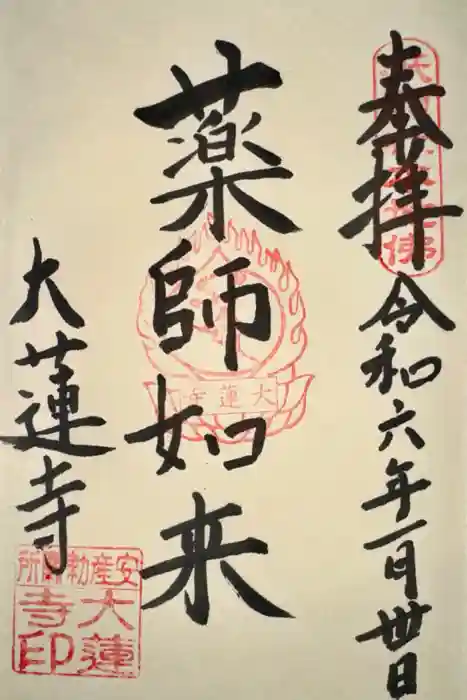 奉拝
令和六年一月卅日
薬師如来
大蓮寺
大蓮寺
安産勅願所
大蓮寺印